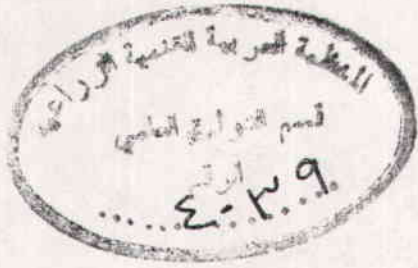 المنظمة العربية للتنمية الزراعية
قسم العلمي
الرقم
٤٠٣٩